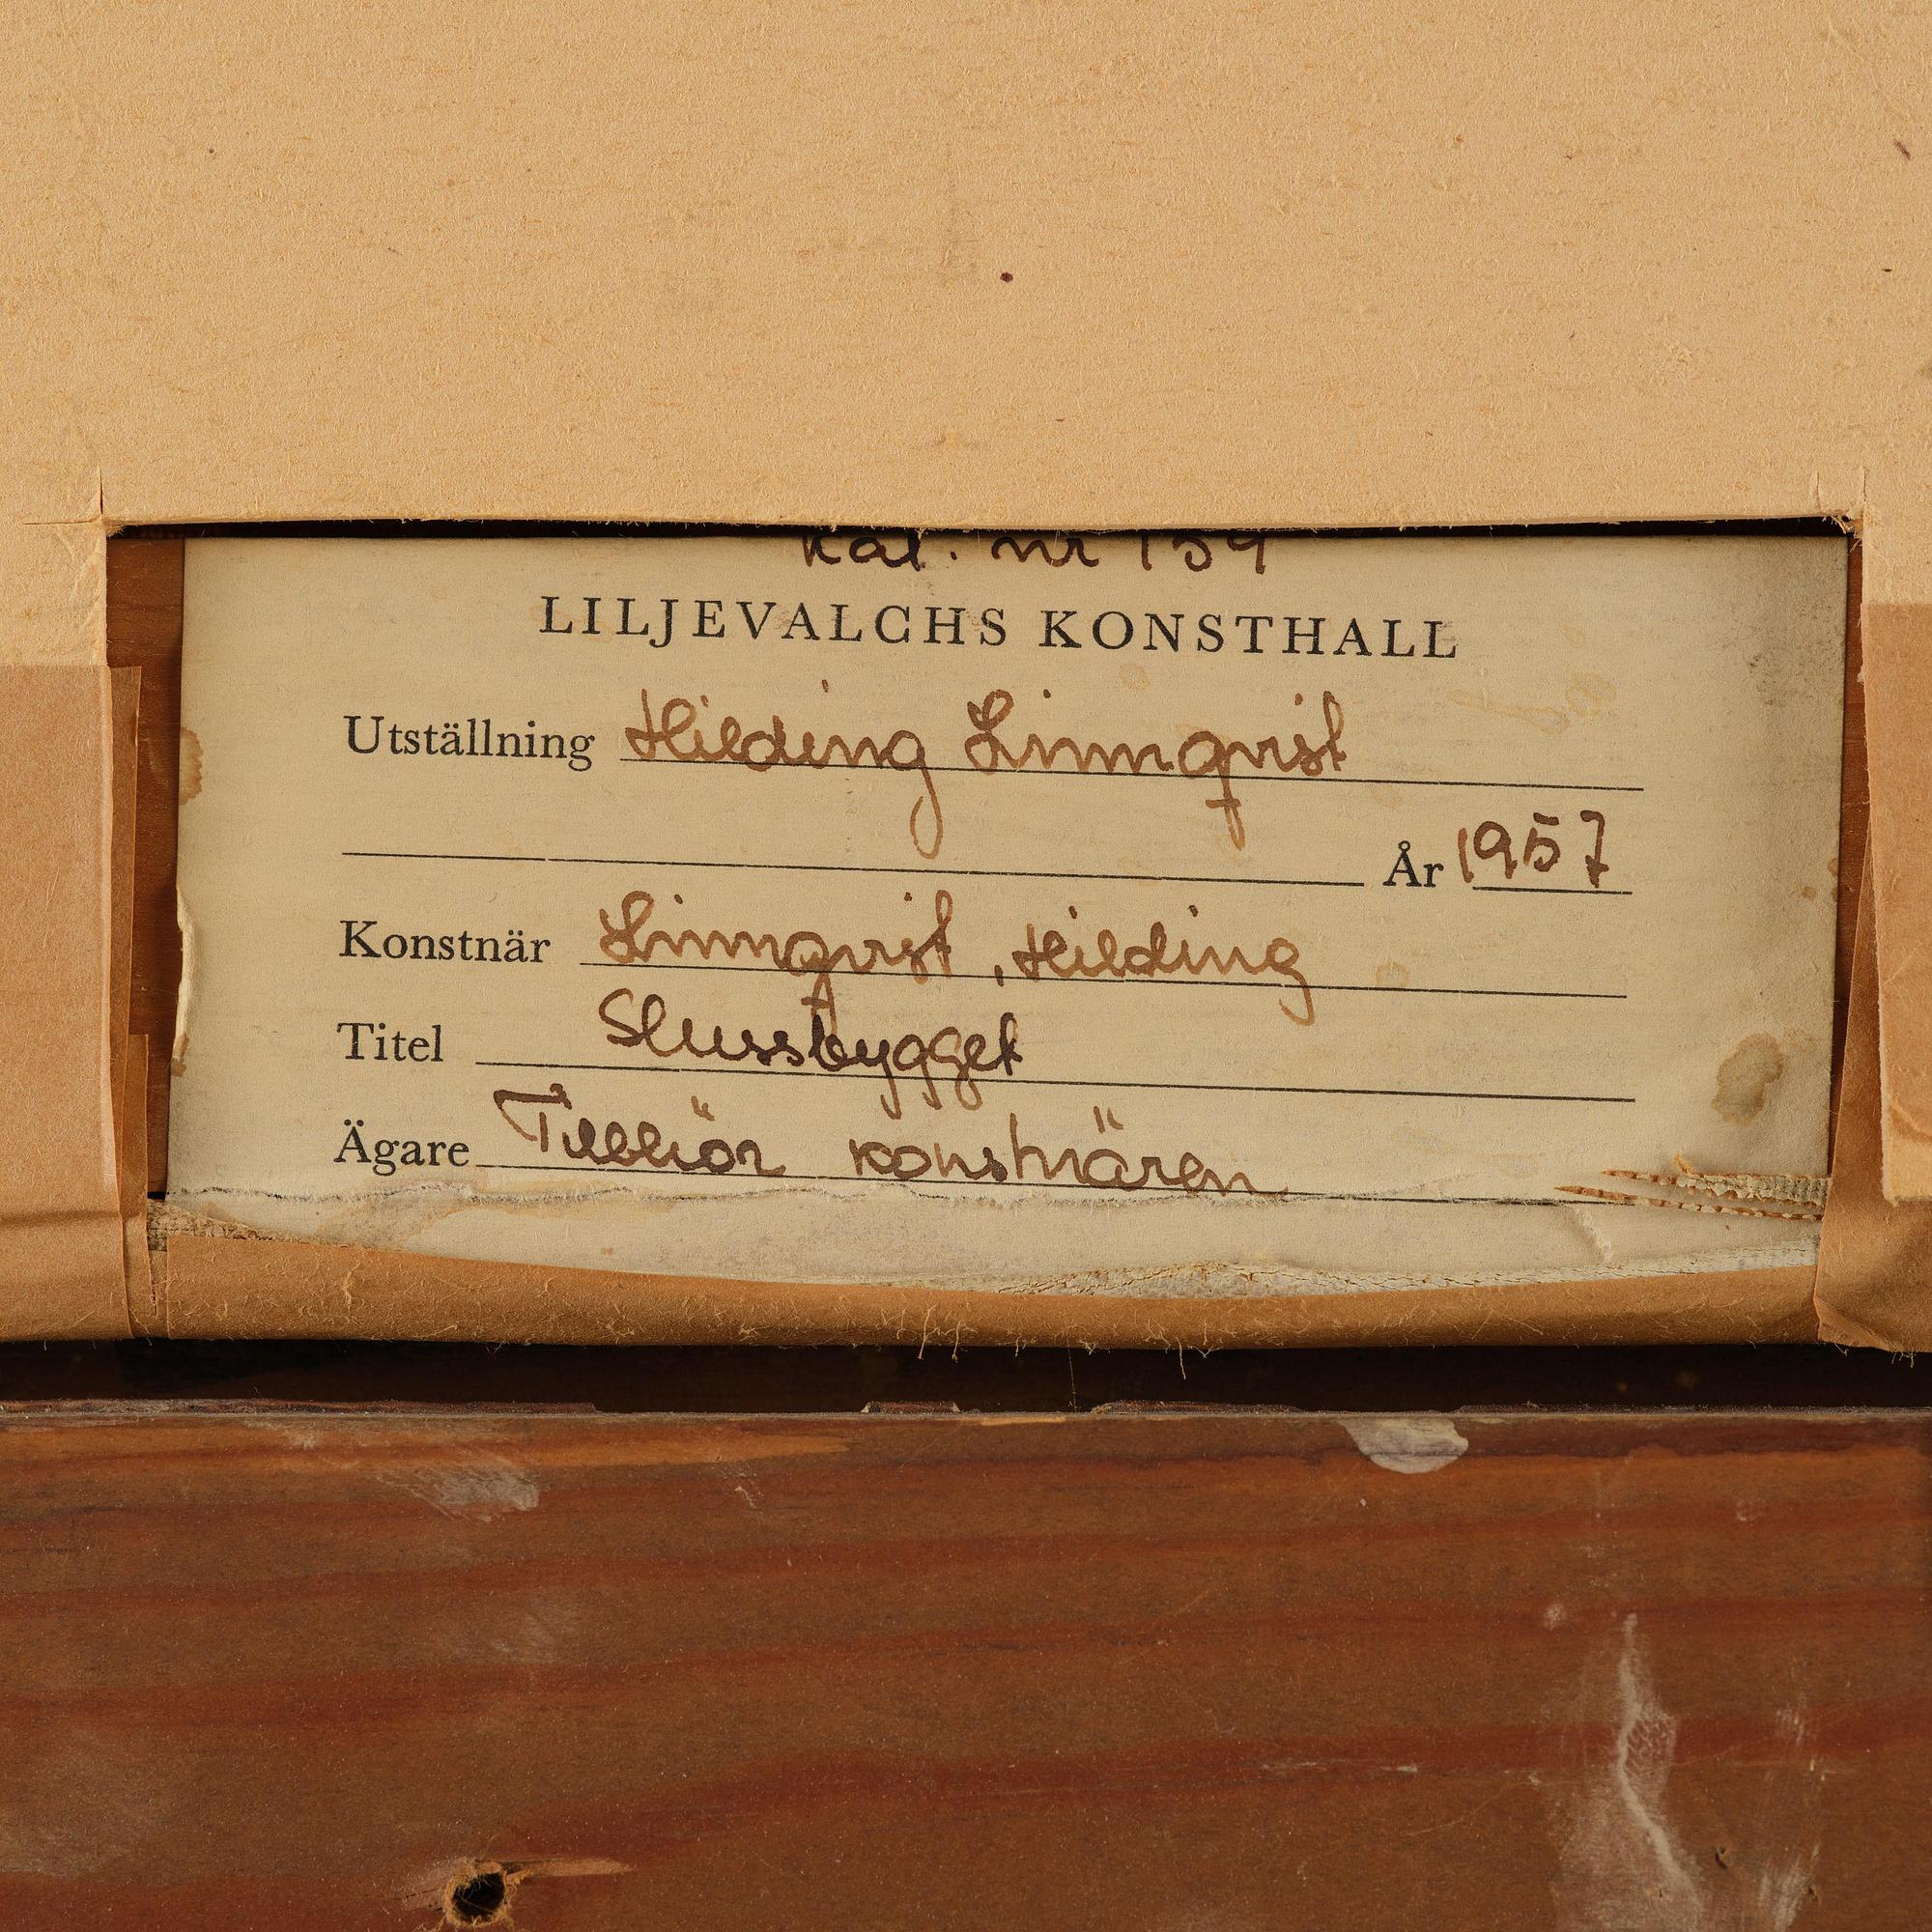 kat. nr 159
LILJEVALCHS KONSTHALL
Utställning Hilding Linnqvist
År 1957
Konstnär Linnqvist, Hilding
Titel Slussbygget
Ägare Tillhör konstnären